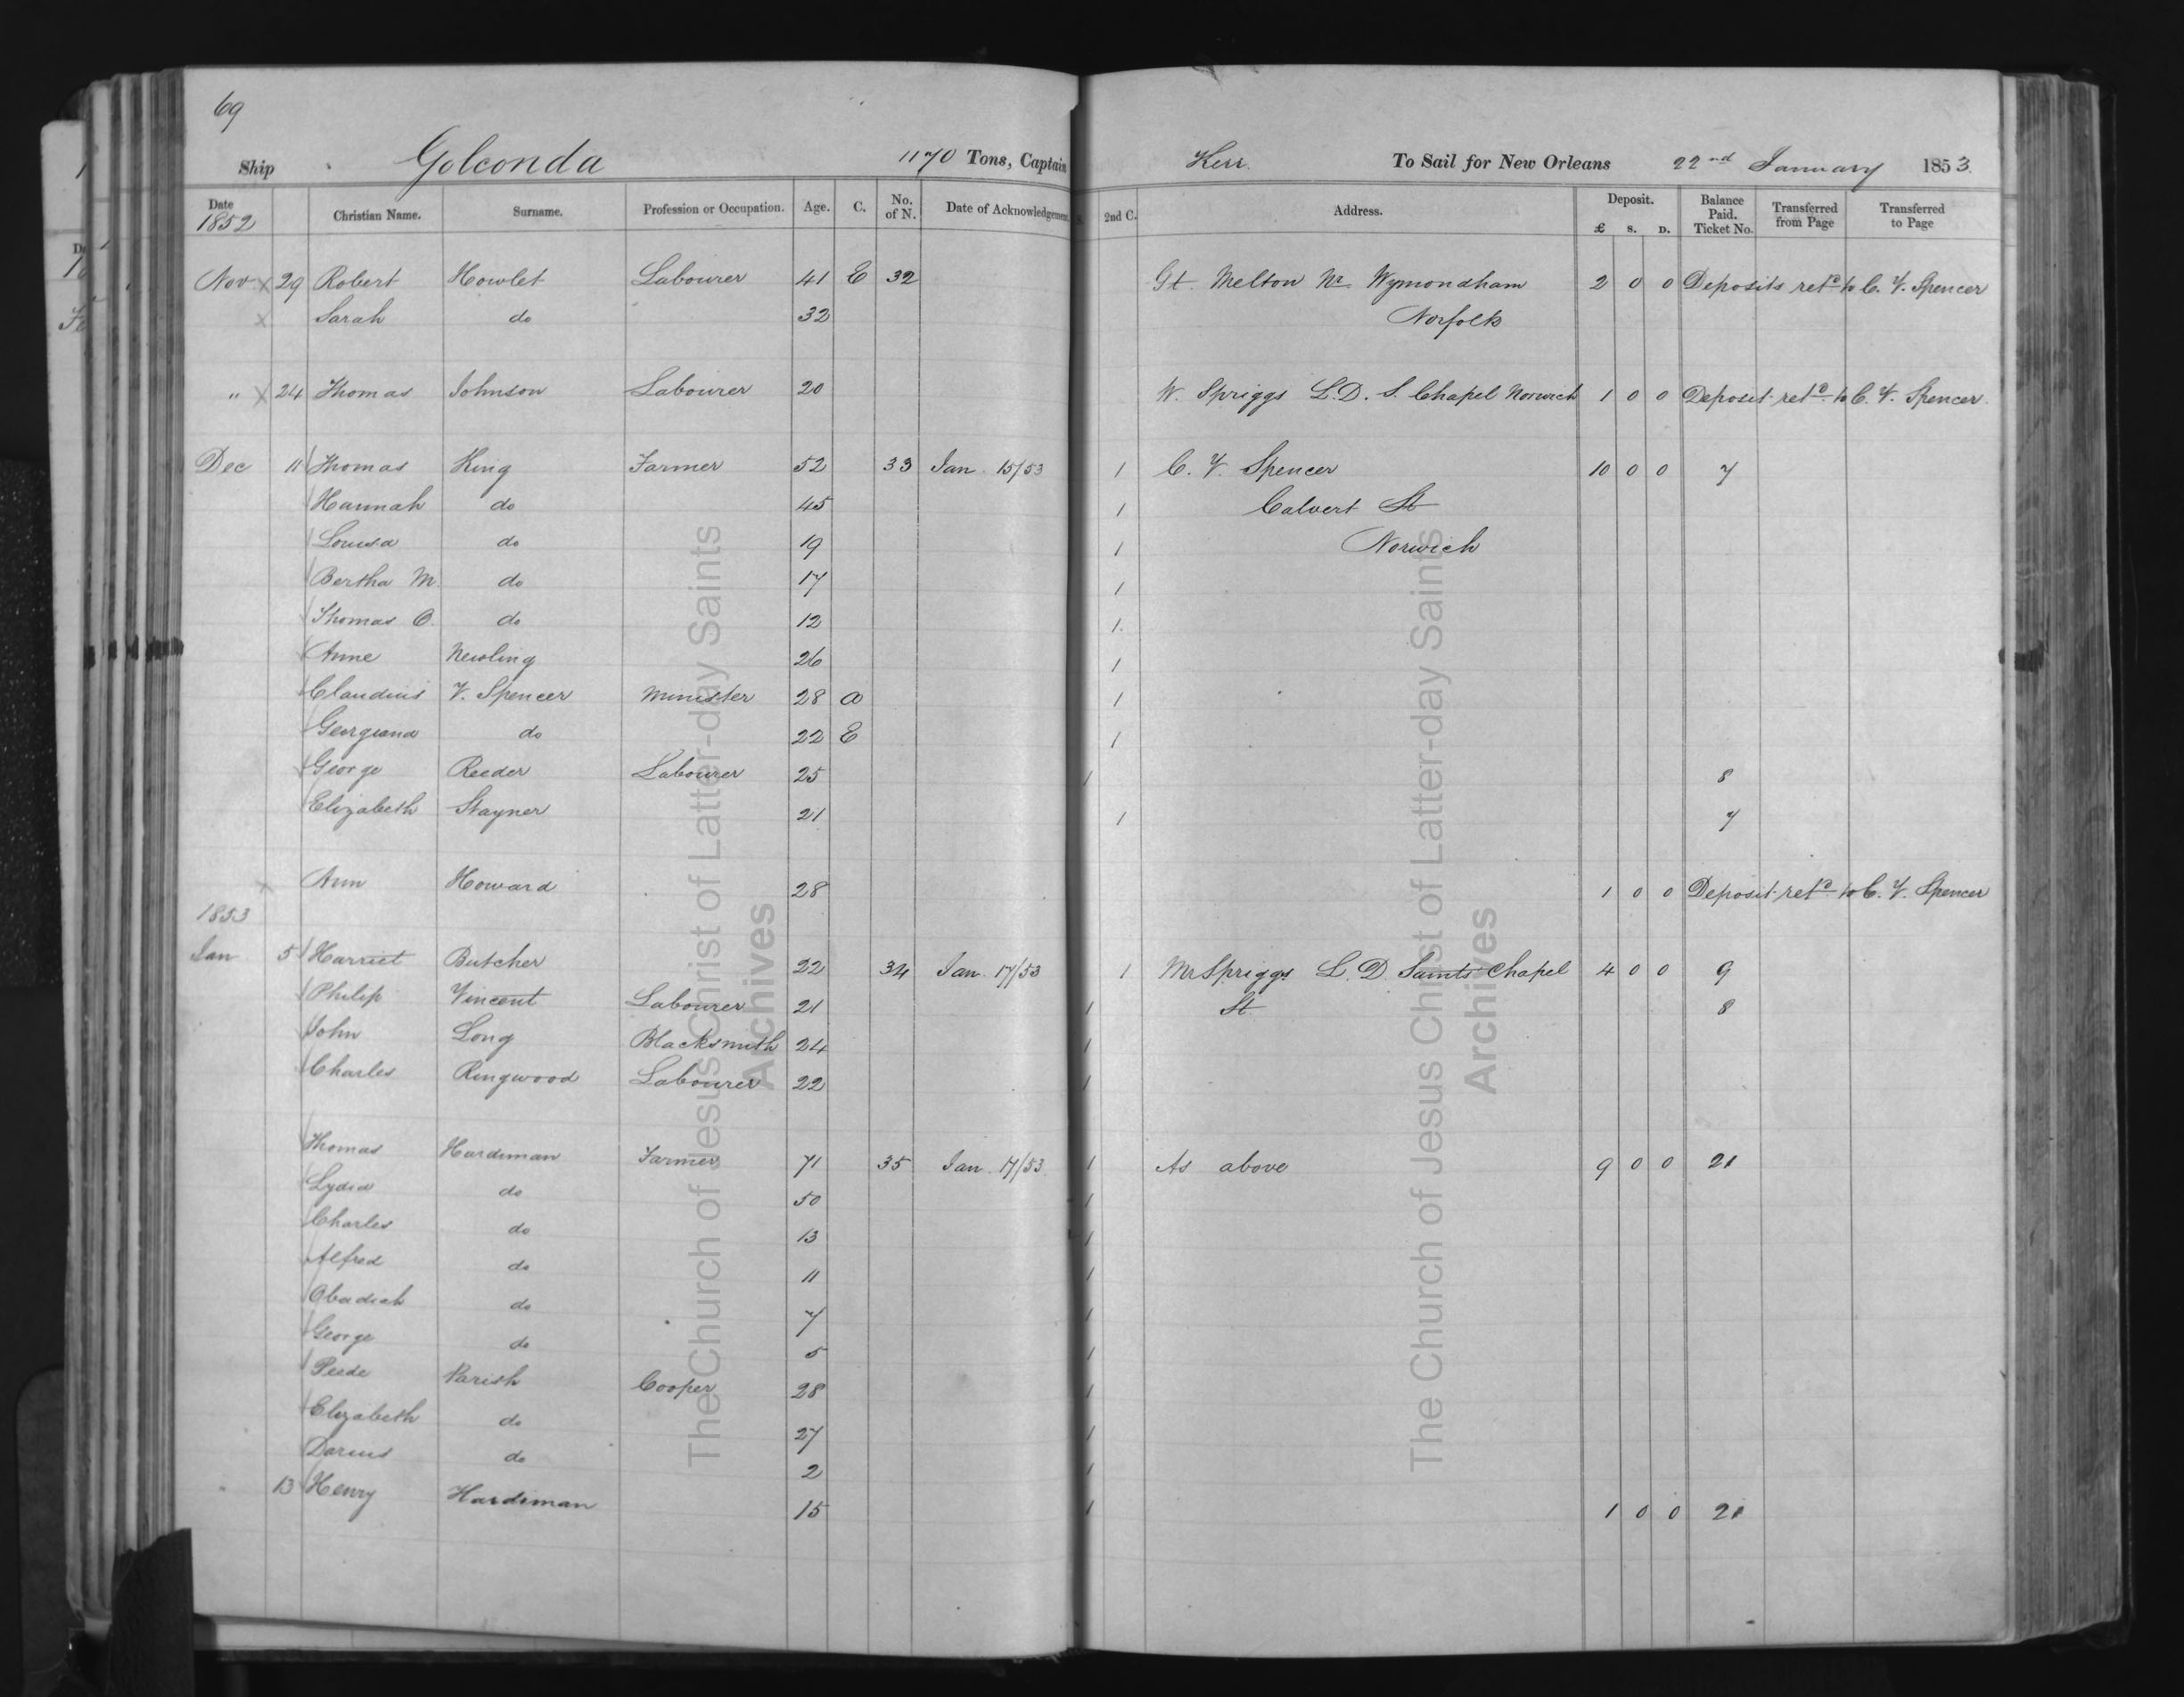 69
Ship Golconda 1170 Tons, Captain Kerr. To Sail for New Orleans 22nd January 1853.
Date 1852 Christian Name. Surname. Profession or Occupation. Age. C. No. of N. Date of Acknowledgement. 2nd C. Address. Deposit. £ s. D. Balance Paid. Ticket No. Transferred from Page Transferred to Page
Nov x 29 Robert Howlet Labourer 41 E 32 Gt Melton Nr Wymondham 2 0 0 Deposits retd to C. V. Spencer
x Sarah do 32 Norfolk
" x 24 Thomas Johnson Labourer 20 W. Spriggs L. D. S. Chapel Norwich 1 0 0 Deposit retd to C. V. Spencer.
Dec 11 Thomas King Farmer 52 33 Jan. 15/53 1 C. V. Spencer 10 0 0 7
Hannah do 45 1 Calvert St
Louisa do 19 1 Norwich
Bertha M. do 17 1
Thomas O. do 12 1.
Anne Newling 26 1
Claudius V. Spencer Minister 28 a 1
Georgiana do 22 E 1
George Reeder Labourer 25 1 8
Elizabeth Stayner 21 1 7
x Ann Howard 28 1 0 0 Deposit retd to C. V. Spencer
1853
Jan 5 Harriet Butcher 22 34 Jan. 17/53 1 Mr Spriggs L. D. Saints Chapel 4 0 0 9
Philip Vincent Labourer 21 1 St 8
John Long Blacksmith 24 1
Charles Ringwood Labourer 22 1
Thomas Hardiman Farmer 71 35 Jan. 17/53 1 As above 9 0 0 21
Lydia do 50 1
Charles do 13 1
Alfred do 11 1
Obadiah do 7 1
George do 5 1
Peede Parish Cooper 28 1
Elizabeth do 27 1
Darius do 2 1
13 Henry Hardiman 15 1 1 0 0 21
The Church of Jesus Christ of Latter-day Saints
Archives
The Church of Jesus Christ of Latter-day Saints
Archives